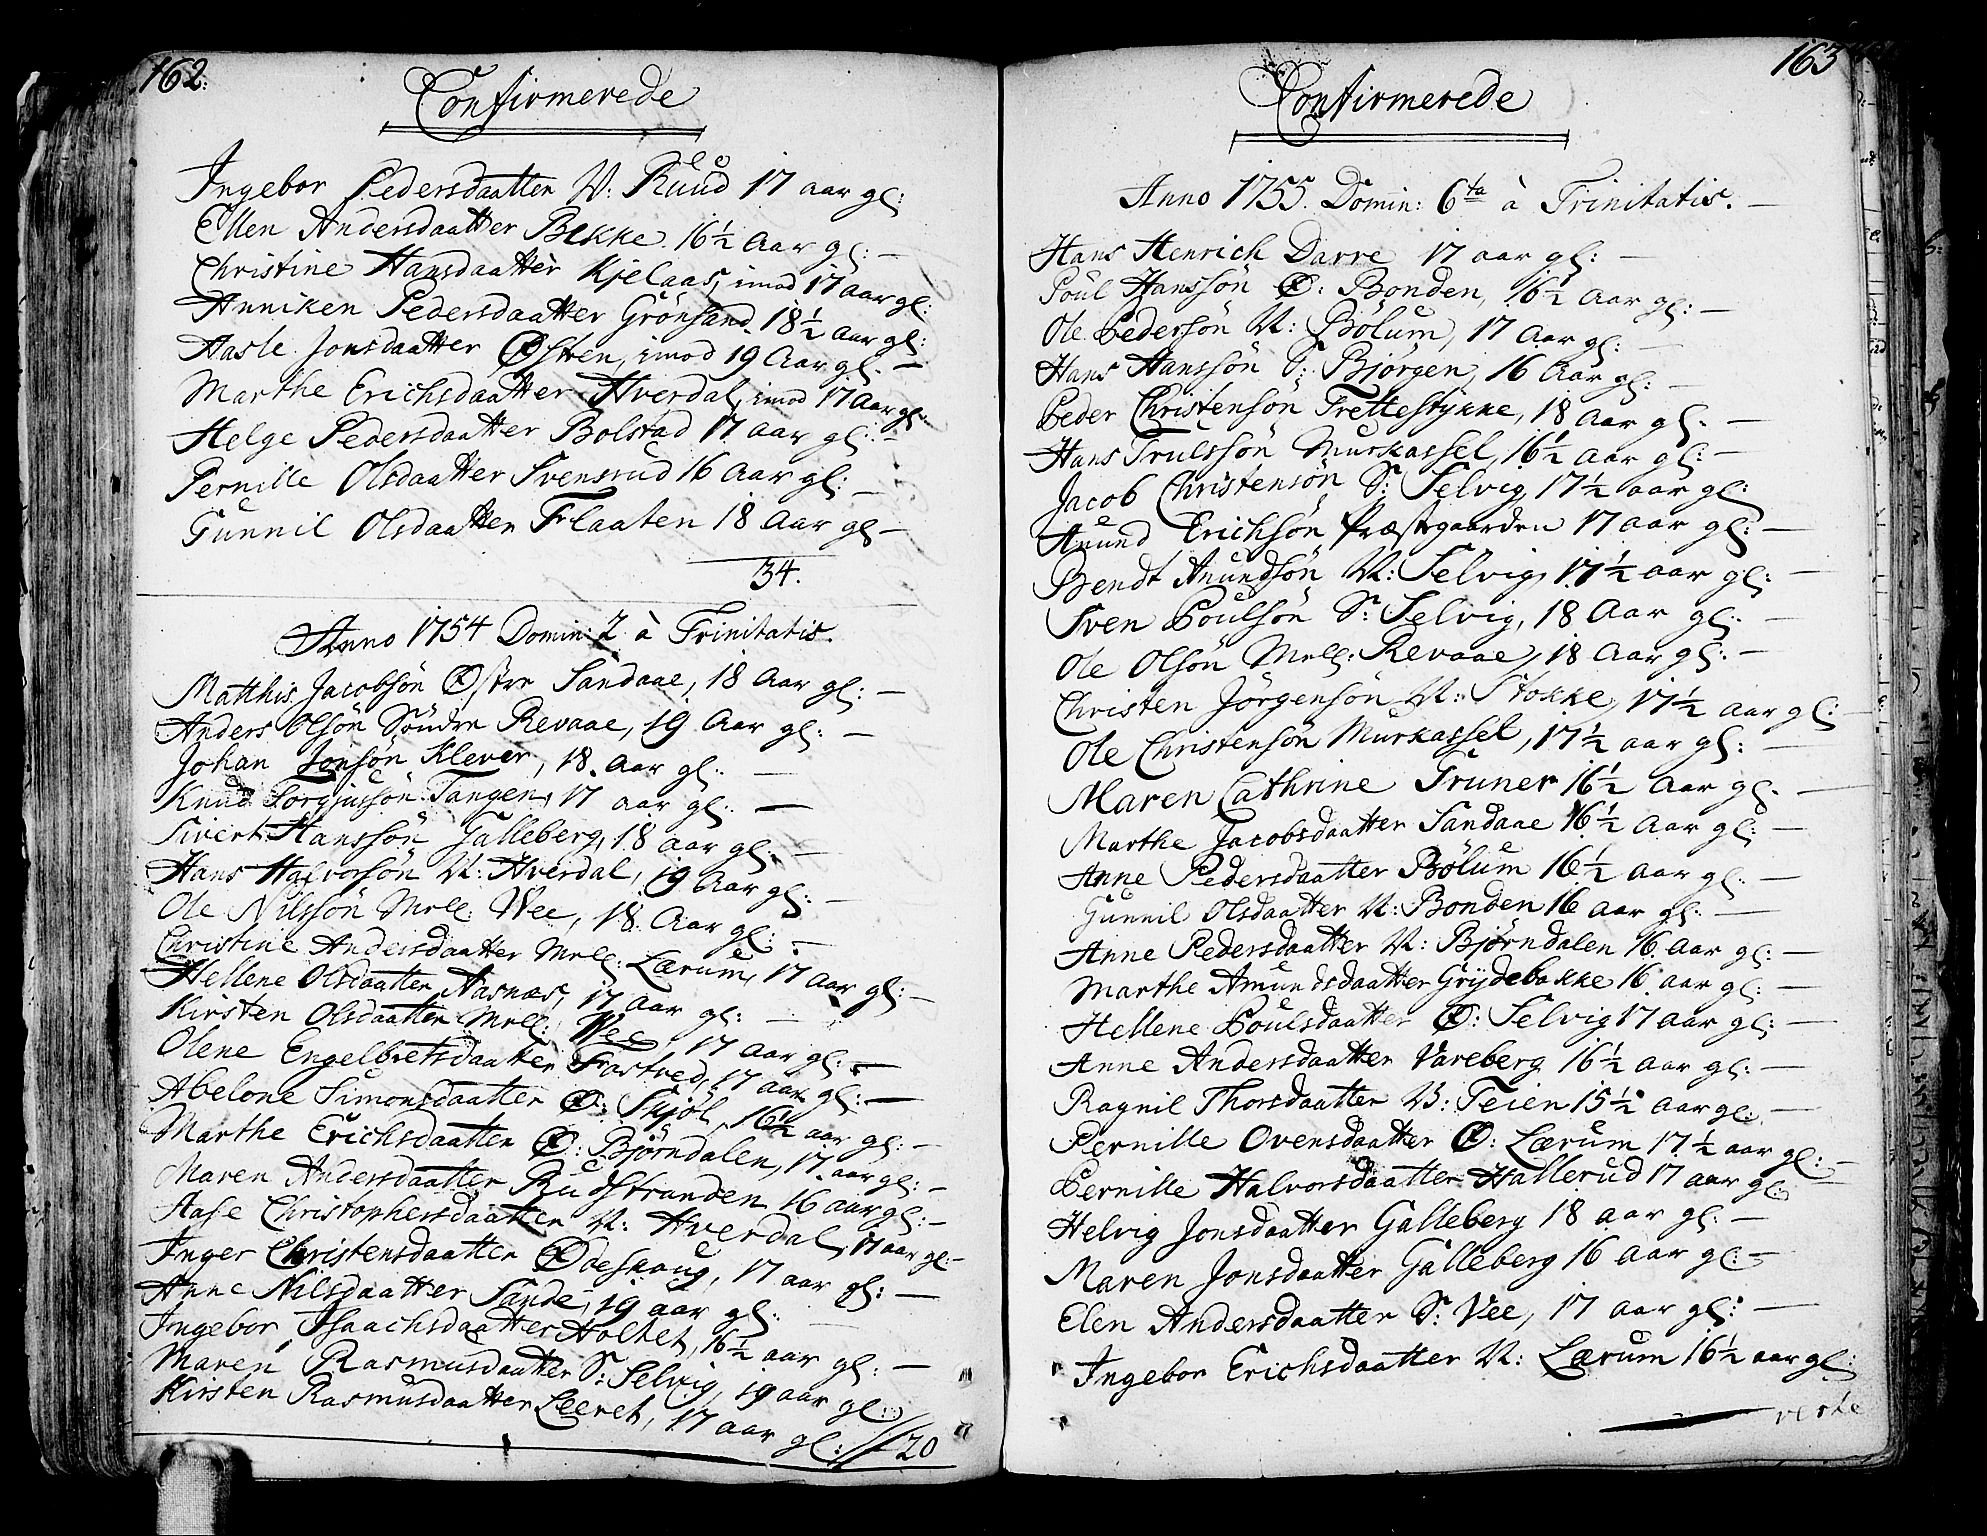 162.
Confirmerede
Ingebor Pedersdaatter V: Ruud 17 aar gl:
Ellen Andersdaatter Bekke. 16½ Aar gl:
Christine Hansdaatter Kjelaas, imod 17 aar gl:
Anniken Pedersdaatter Grönsand. 18½ aar gl:
Aasle Jonsdaatter Østen, imod 19 Aar gl.
Marthe Erichsdaatter Hverdal, imod 17 Aar gl.
Helge Pedersdaatter Bolstad 17 aar gl:
Pernille Olsdaatter Svensrud 16 Aar gl:
Gunnil Olsdaatter Flaaten 18 Aar gl
34.
Anno 1754 Domin: 2 à Trinitatis.
Matthis Jacobsön Østre Sandaae, 18 Aar gl:
Anders Olsön Söndre Revaae, 19 Aar gl:
Johan Jonsön Klever, 18. Aar gl:
Knud Torgjussön Tangen, 17 aar gl:
Sivert Hanssön Galleberg, 18 aar gl:
Hans Halvorsön V: Hverdal, 19 Aar gl:
Ole Nilssön Mell: Wee, 18 Aar gl:
Christine Andersdaatter Mell: Lærum, 17 aar gl:
Hellene Olsdaatter Aasnæs, 17 aar gl:
Kirsten Olsdaatter Mell: Wee, 17 Aar gl:
Olene Engelbretsdaatter Fostved, 17 aar gl:
Abelone Simonsdaatter Ø: Skjöl, 16½ aar gl:
Marthe Erichsdaatter Ø: Bjørndalen, 17 aar gl:
Maren Andersdaatter Rudstranden 16 aar gl:
Aase Christophersdaatter V: Hverdal, 17 aar gl:
Inger Christensdaatter Ødeskoug, 17 aar gl:
Anne Nilsdaatter Sande, 19 aar gl.
Ingebor Isaachsdaatter Holtet, 16½ aar gl:
Maren Rasmusdaatter S: Selvig, 19 aar gl:
Kirsten Rasmusdaatter Leeret, 17 aar gl: // 20
163
Confirmerede
Anno 1755. Domin: 6ta à Trinitatis.
Hans Henrich Darre 17 aar gl:
Poul Hanssön Ø: Bonden, 16½ Aar gl:
Ole Pedersön V: Bölum, 17 Aar gl:
Hans Hanssön S: Bjørgen, 16 Aar gl:
Peder Christensön Trettestykke, 18 aar gl.
Hans Trulssön Murkassel, 16½ Aar gl:
Jacob Christensön S: Selvig, 17½ aar gl:
Anund Erichsön Præstegaarden 17 aar gl:
Bendt Anundsön V: Selvig, 17½ aar gl:
Sven Poulsön S: Selvig, 18 Aar gl.
Ole Olsön Mell: Revaae, 18 Aar gl:
Christen Jörgensön V: Stokke, 17½ aar gl:
Ole Christensön Murkassel, 17½ aar gl:
Maren Cathrine Truner 16½ Aar gl.
Marthe Jacobsdaatter Sandaae 16½ Aar gl:
Anne Pedersdaatter Bölum 16½ aar gl:
Gunnil Olsdaatter V: Bonden 16 aar gl:
Anne Pedersdaatter V: Bjørndalen 16. Aar gl:
Marthe Amundsdaatter Grydebakke 16. aar gl:
Hellene Poulsdaatter Ø: Selvig 17 aar gl:
Anne Andersdaatter Vareberg 16½ aar gl:
Ragnil Thorsdaatter V: Teien 15½ Aar gl:
Pernille Ovensdaatter Ø: Lærum 17½ aar gl:
Pernille Halvorsdaatter Hallerud 17 aar gl:
Helvig Jonsdaatter Galleberg 18 aar gl:
Maren Jonsdaatter Galleberg 16 aar gl:
Elen Andersdaatter S: Vee, 17 aar gl:
Ingebor Erichsdaatter V: Lærum 16½ aar gl:
verte